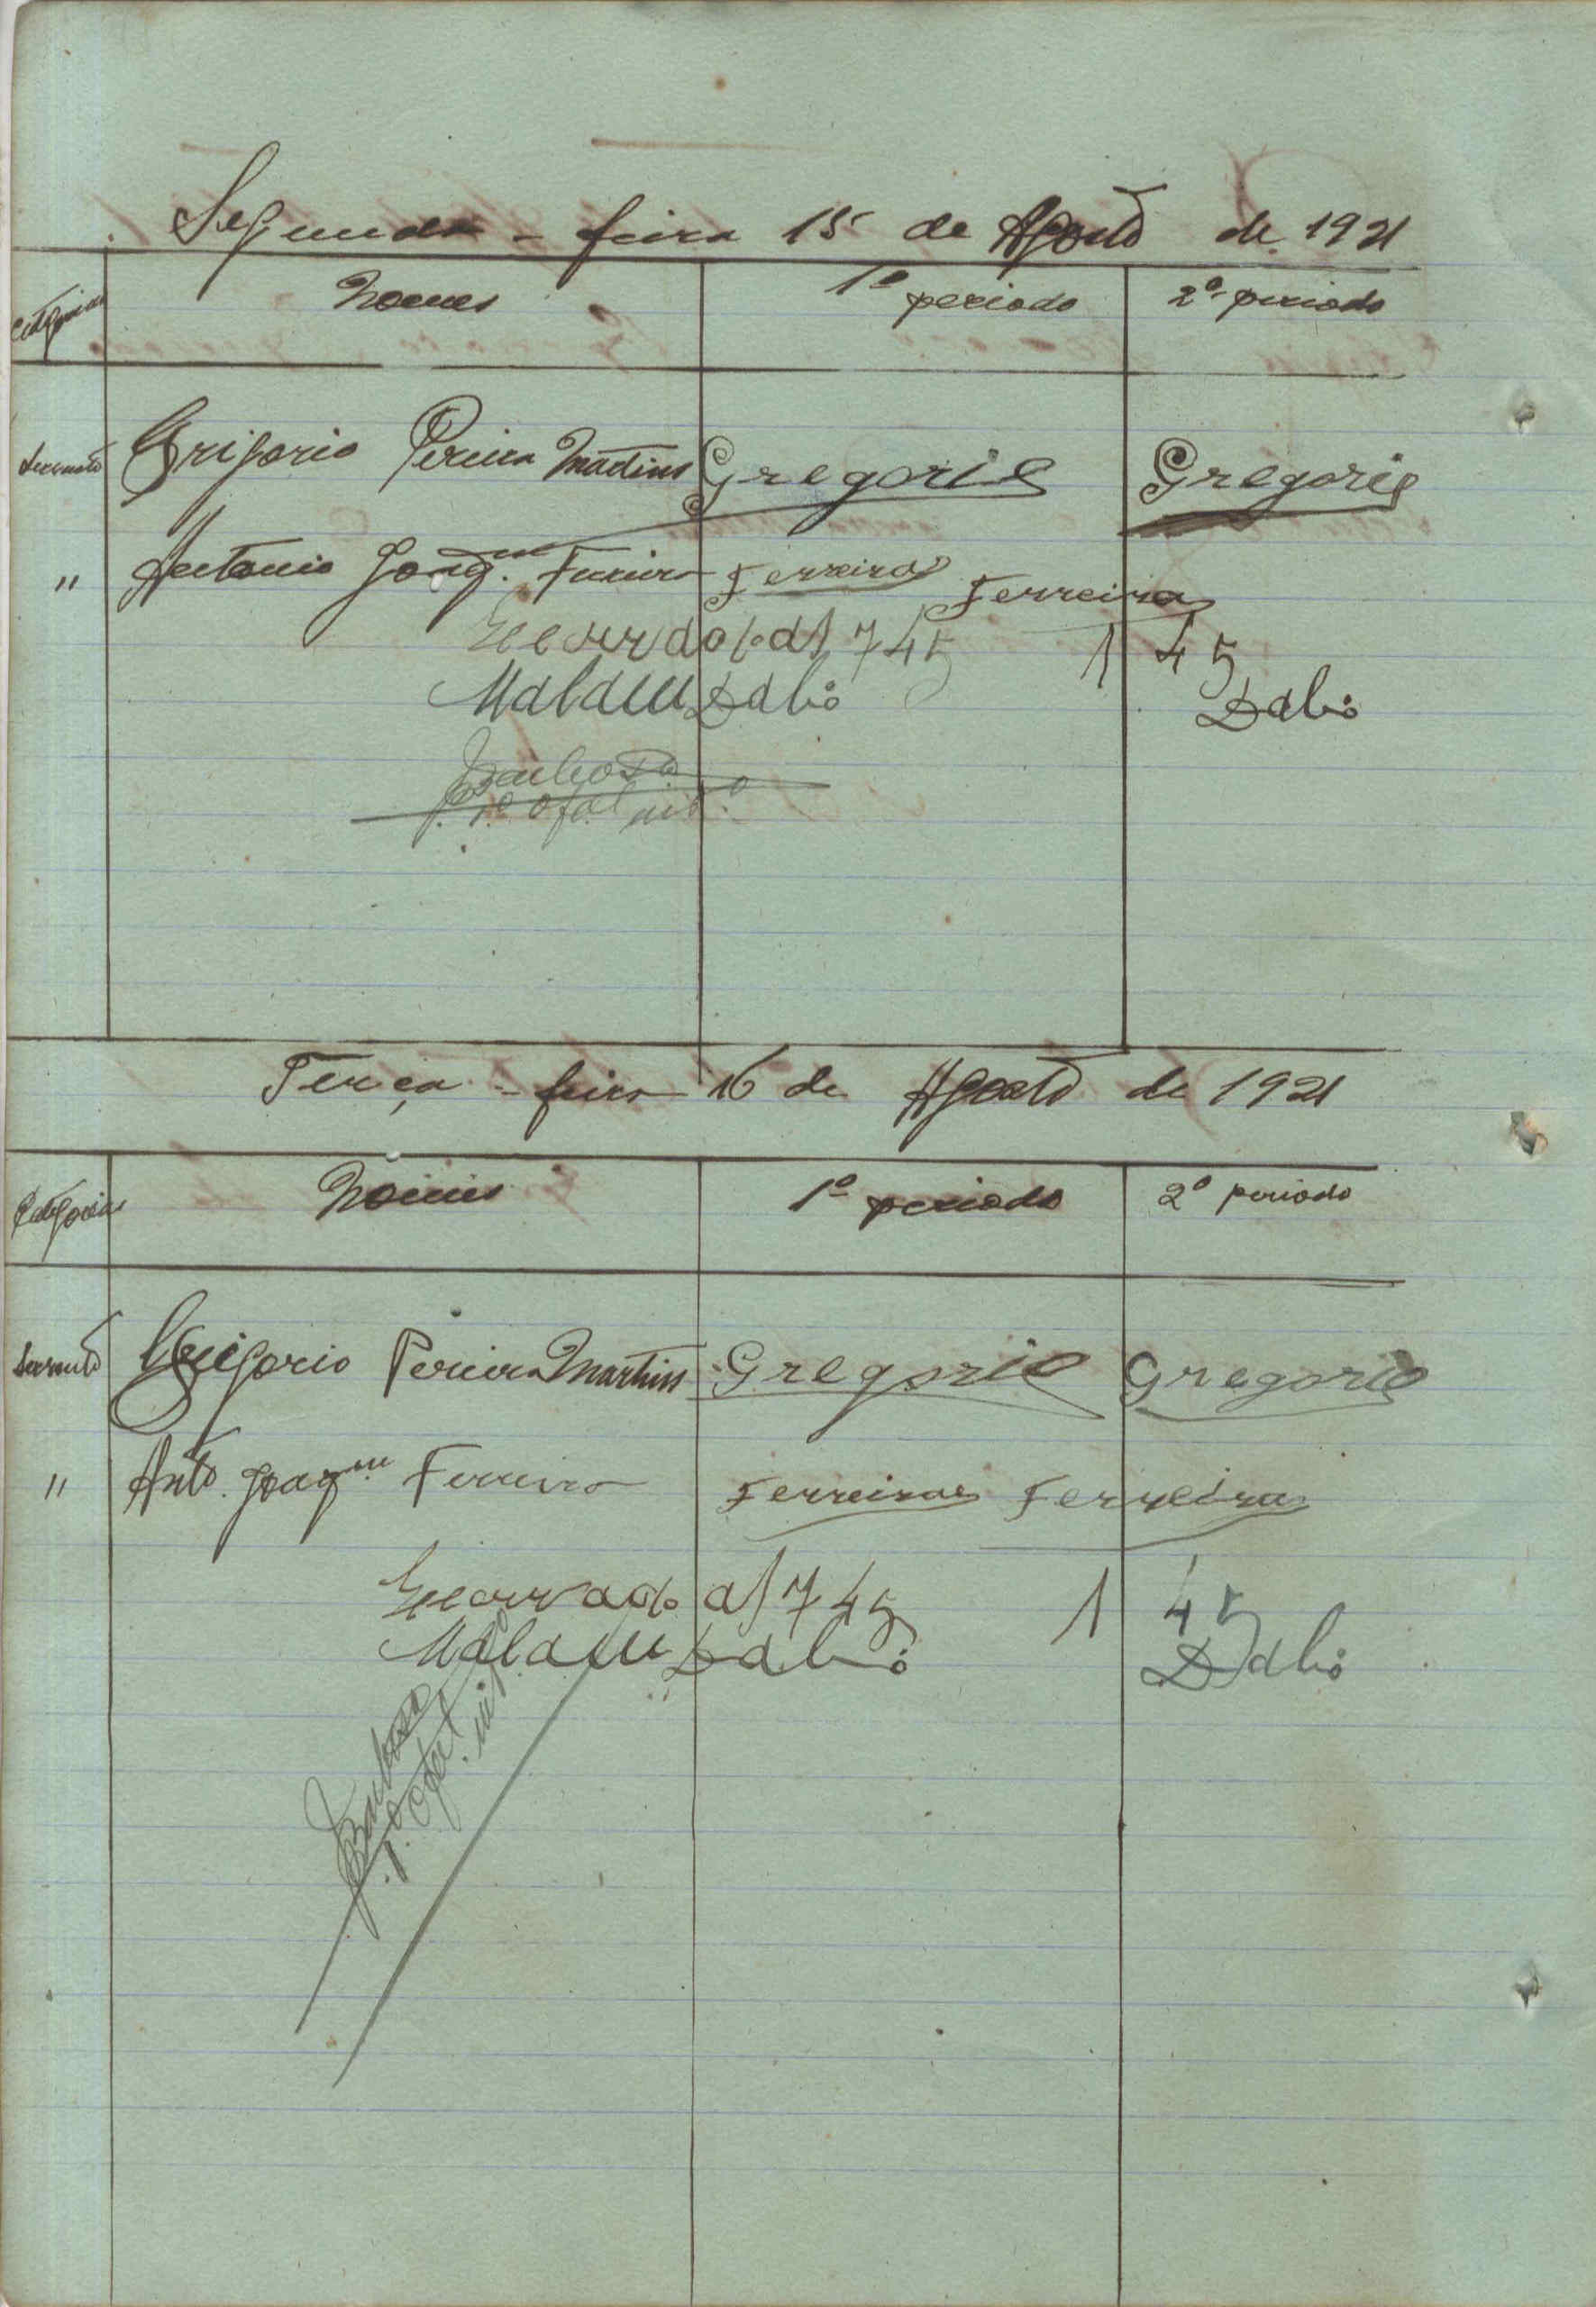 Segunda-feira 15 de Agosto de 1921
Categorias Nomes 1º periodo 2º periodo
Servente Grigorio Pereira Martins Gregorio Gregorio
" Antonio Joaq.m Ferreira Ferreira Ferreira
745 1 45
Malam Dabó Dabó
Barbosa
1º ofal
Terça-feira 16 de Agosto de 1921
Categorias Nomes 1º periodo 2º periodo
Servente Grigorio Pereira Martins Gregorio Gregorio
" Antº Joaqm Ferreira Ferreira Ferreira
745 1 45
Malam Dabó Dabó
Barbosa